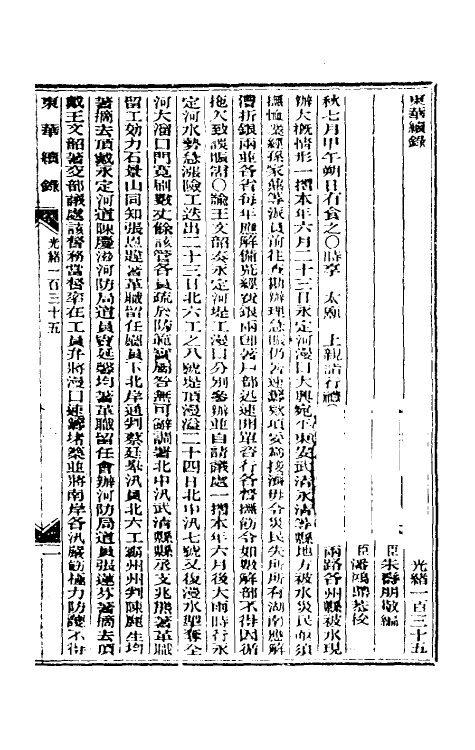 東華續錄
光緒一百三十五
臣朱壽朋敬編
臣潘鴻鼎恭校
秋七月甲午朔日有食之〇時享　太廟　上親詣行禮
兩路各州縣被水現
辦大概情形一摺本年六月二十三日永定河漫口大興宛平東安武清永清等縣地方被水災民亟須
撫恤業經孫家鼐等派員前往查勘辦理急賑仍著速籌款項妥為接濟毋令災民失所所有湖南應解
漕折銀兩並各省每年應解備荒經費銀兩即著戶部迅速開單咨行各督撫飭令如數解部不得因循
拖欠致誤賑需〇諭王文韶奏永定河堤工漫口分別參辦並自請議處一摺本年六月後大雨時行永
定河水勢急漲險工迭出二十三日北六工之八號堤頂漫溢二十四日北中汛七號又復漫水掣奪全
河大溜口門寬刷數丈餘該管各員疏於防範實屬咎無可辭調署北中汛武清縣縣丞支兆熊著革職
留工効力石景山同知張恩霔著革職留任廳員下北岸通判蔡廷舉汛員北六工霸州州判陳麗生均
著摘去頂戴永定河道陳慶滋河防局道員竇延馨均著革職留任會辦河防局道員張蓮芬著摘去頂
戴王文韶著交部議處該督務當督率在工員弁將漫口速籌堵築並將南岸各汛嚴飭極力防護不得
東華續錄
光緒一百三十五
一